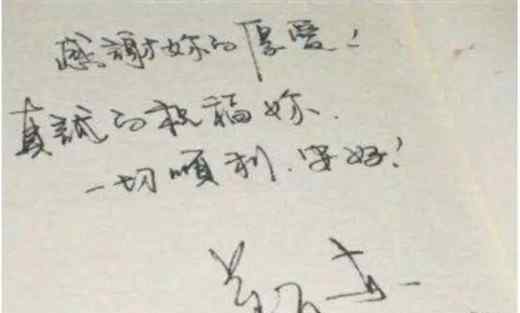 感謝妳的厚愛!
真誠的祝福妳.
一切順利.安好!